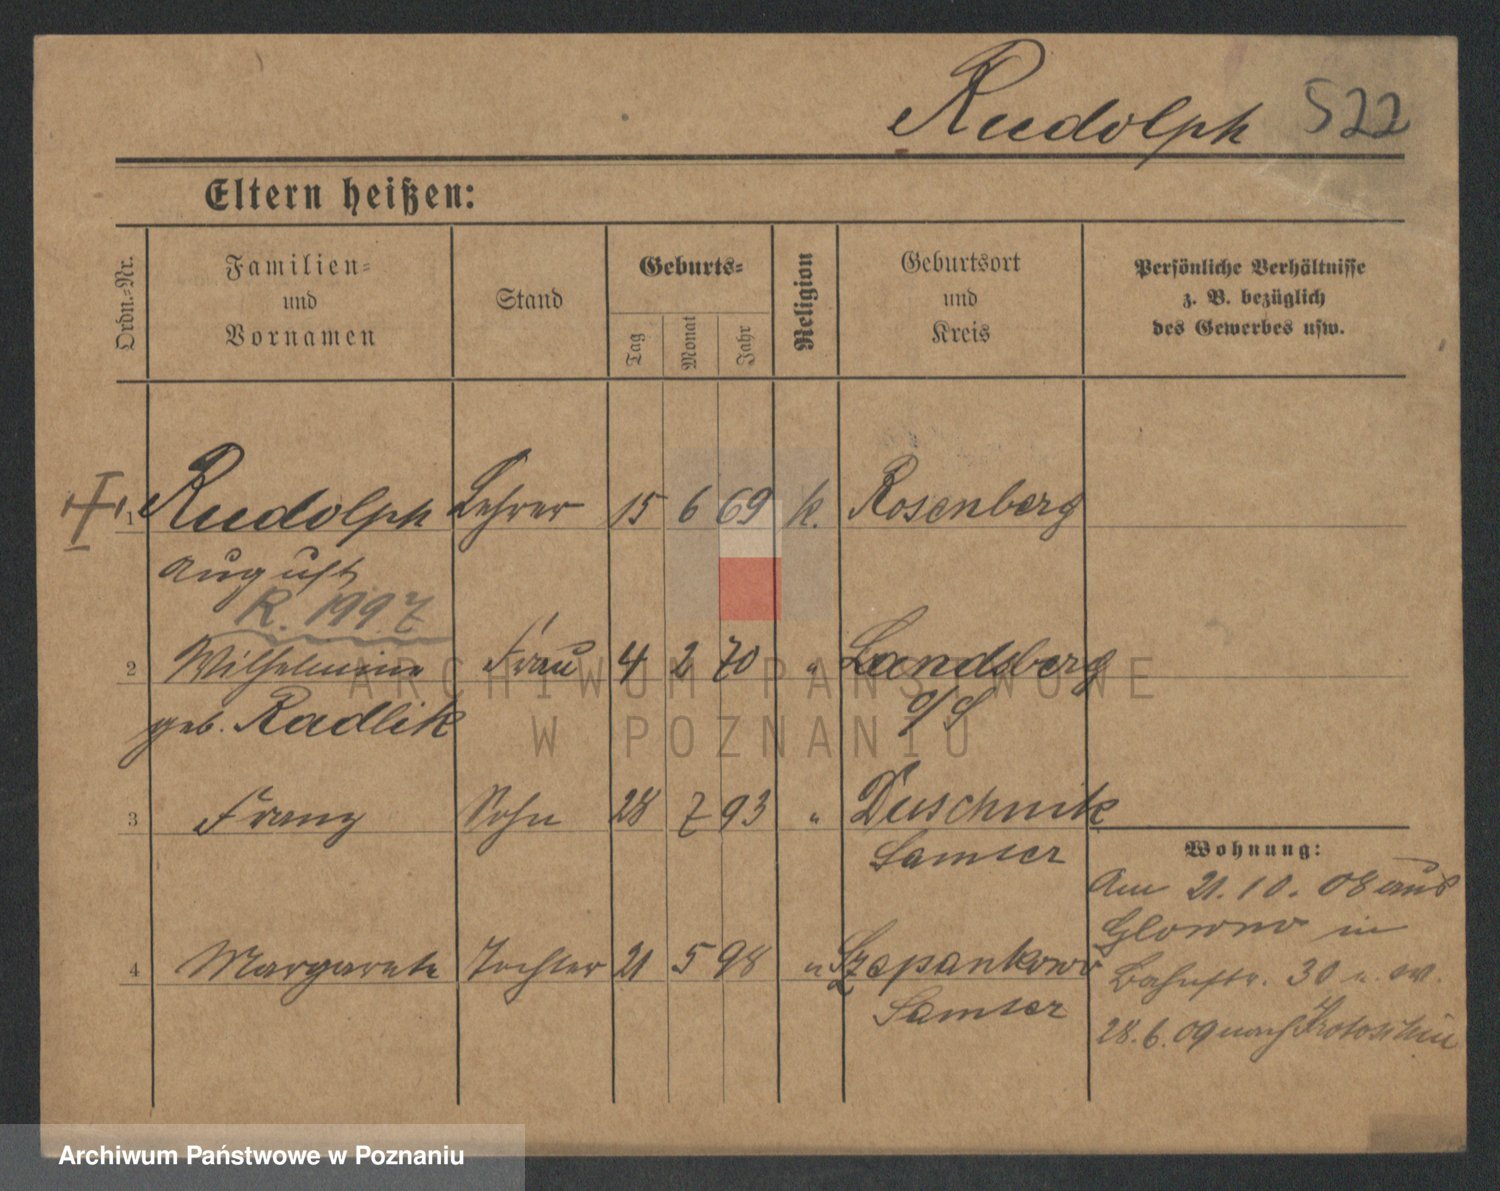 Rudolph 522
Eltern heißen:
Ordn.-Nr.
Familien-
und
Vornamen
Stand
Geburts-
Tag
Monat
Jahr
Religion
Geburtsort
und
Kreis
Persönliche Verhältnisse
z. B. bezüglich
des Gewerbes usw.
1 Rudolph Lehrer 15 6 69 k. Rosenberg
August
R. 1997
2 Wilhelmine Frau 4 2 70 " Landsberg
geb. Radlik o/S
3 Franz Sohn 28 7 93 " Duschnik
Samter
Wohnung:
Am 21.10.08 aus
Glowno in
4 Margarete Tochter 21 5 98 " Szepankowo
Bahnstr. 30
Samter
28.6.09 nach Krotoschin
ARCHIWUM PAŃSTWOWE
W POZNANIU
Archiwum Państwowe w Poznaniu